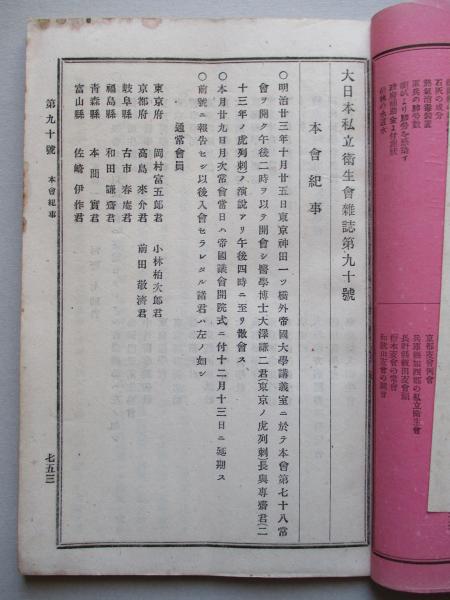 石灰の成分
京都支會例會
兵庫縣加西郡の私立衛生會
和歌山支會の開會
大日本私立衛生會雜誌第九十號
本會紀事
〇明治廿三年十月廿五日東京神田一ツ橋外帝國大學講義室ニ於テ本會第七十八常
會ヲ開ク午後二時ヲ以テ開會シ醫學博士大澤謙二君(東京ノ虎列剌)長與專齋君(二
十三年ノ虎列剌)ノ演說アリ午後四時ニ至リ散會ス
〇本月廿九日月次常會當日ハ帝國議會開院式ニ付十二月十三日ニ延期ス
〇前號ニ報告セシ以後入會セラレタル諸君ハ左ノ如シ
通常會員
東京府 岡村富五郎君 小林柏次郎君
京都府 高島來介君 前田敬濟君
岐阜縣 古市春庵君
福島縣 和田謙齋君
靑森縣 本間一實君
富山縣 佐崎伊作君
第九十號 本會紀事
七五三